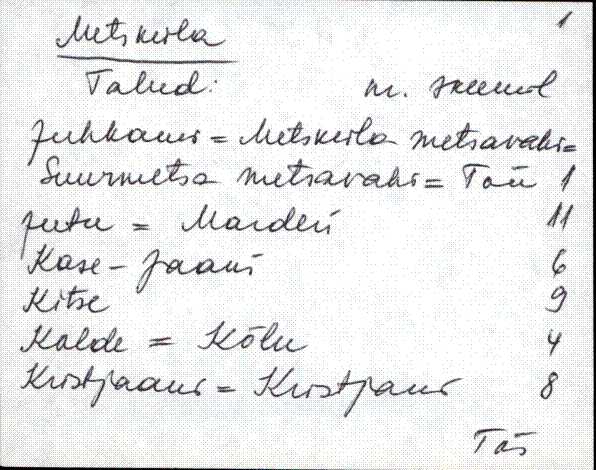 1
Metskirla
Talud: nr. skeemil
Juhkami = Metskirla metsavahi =
Suurmetsa metsavahi = Toü 1
Jutu = Marderi 11
Kase-Jaani 6
Kitse 9
Kalde = Kõlu 4
Kristjaani = Kristjani 8